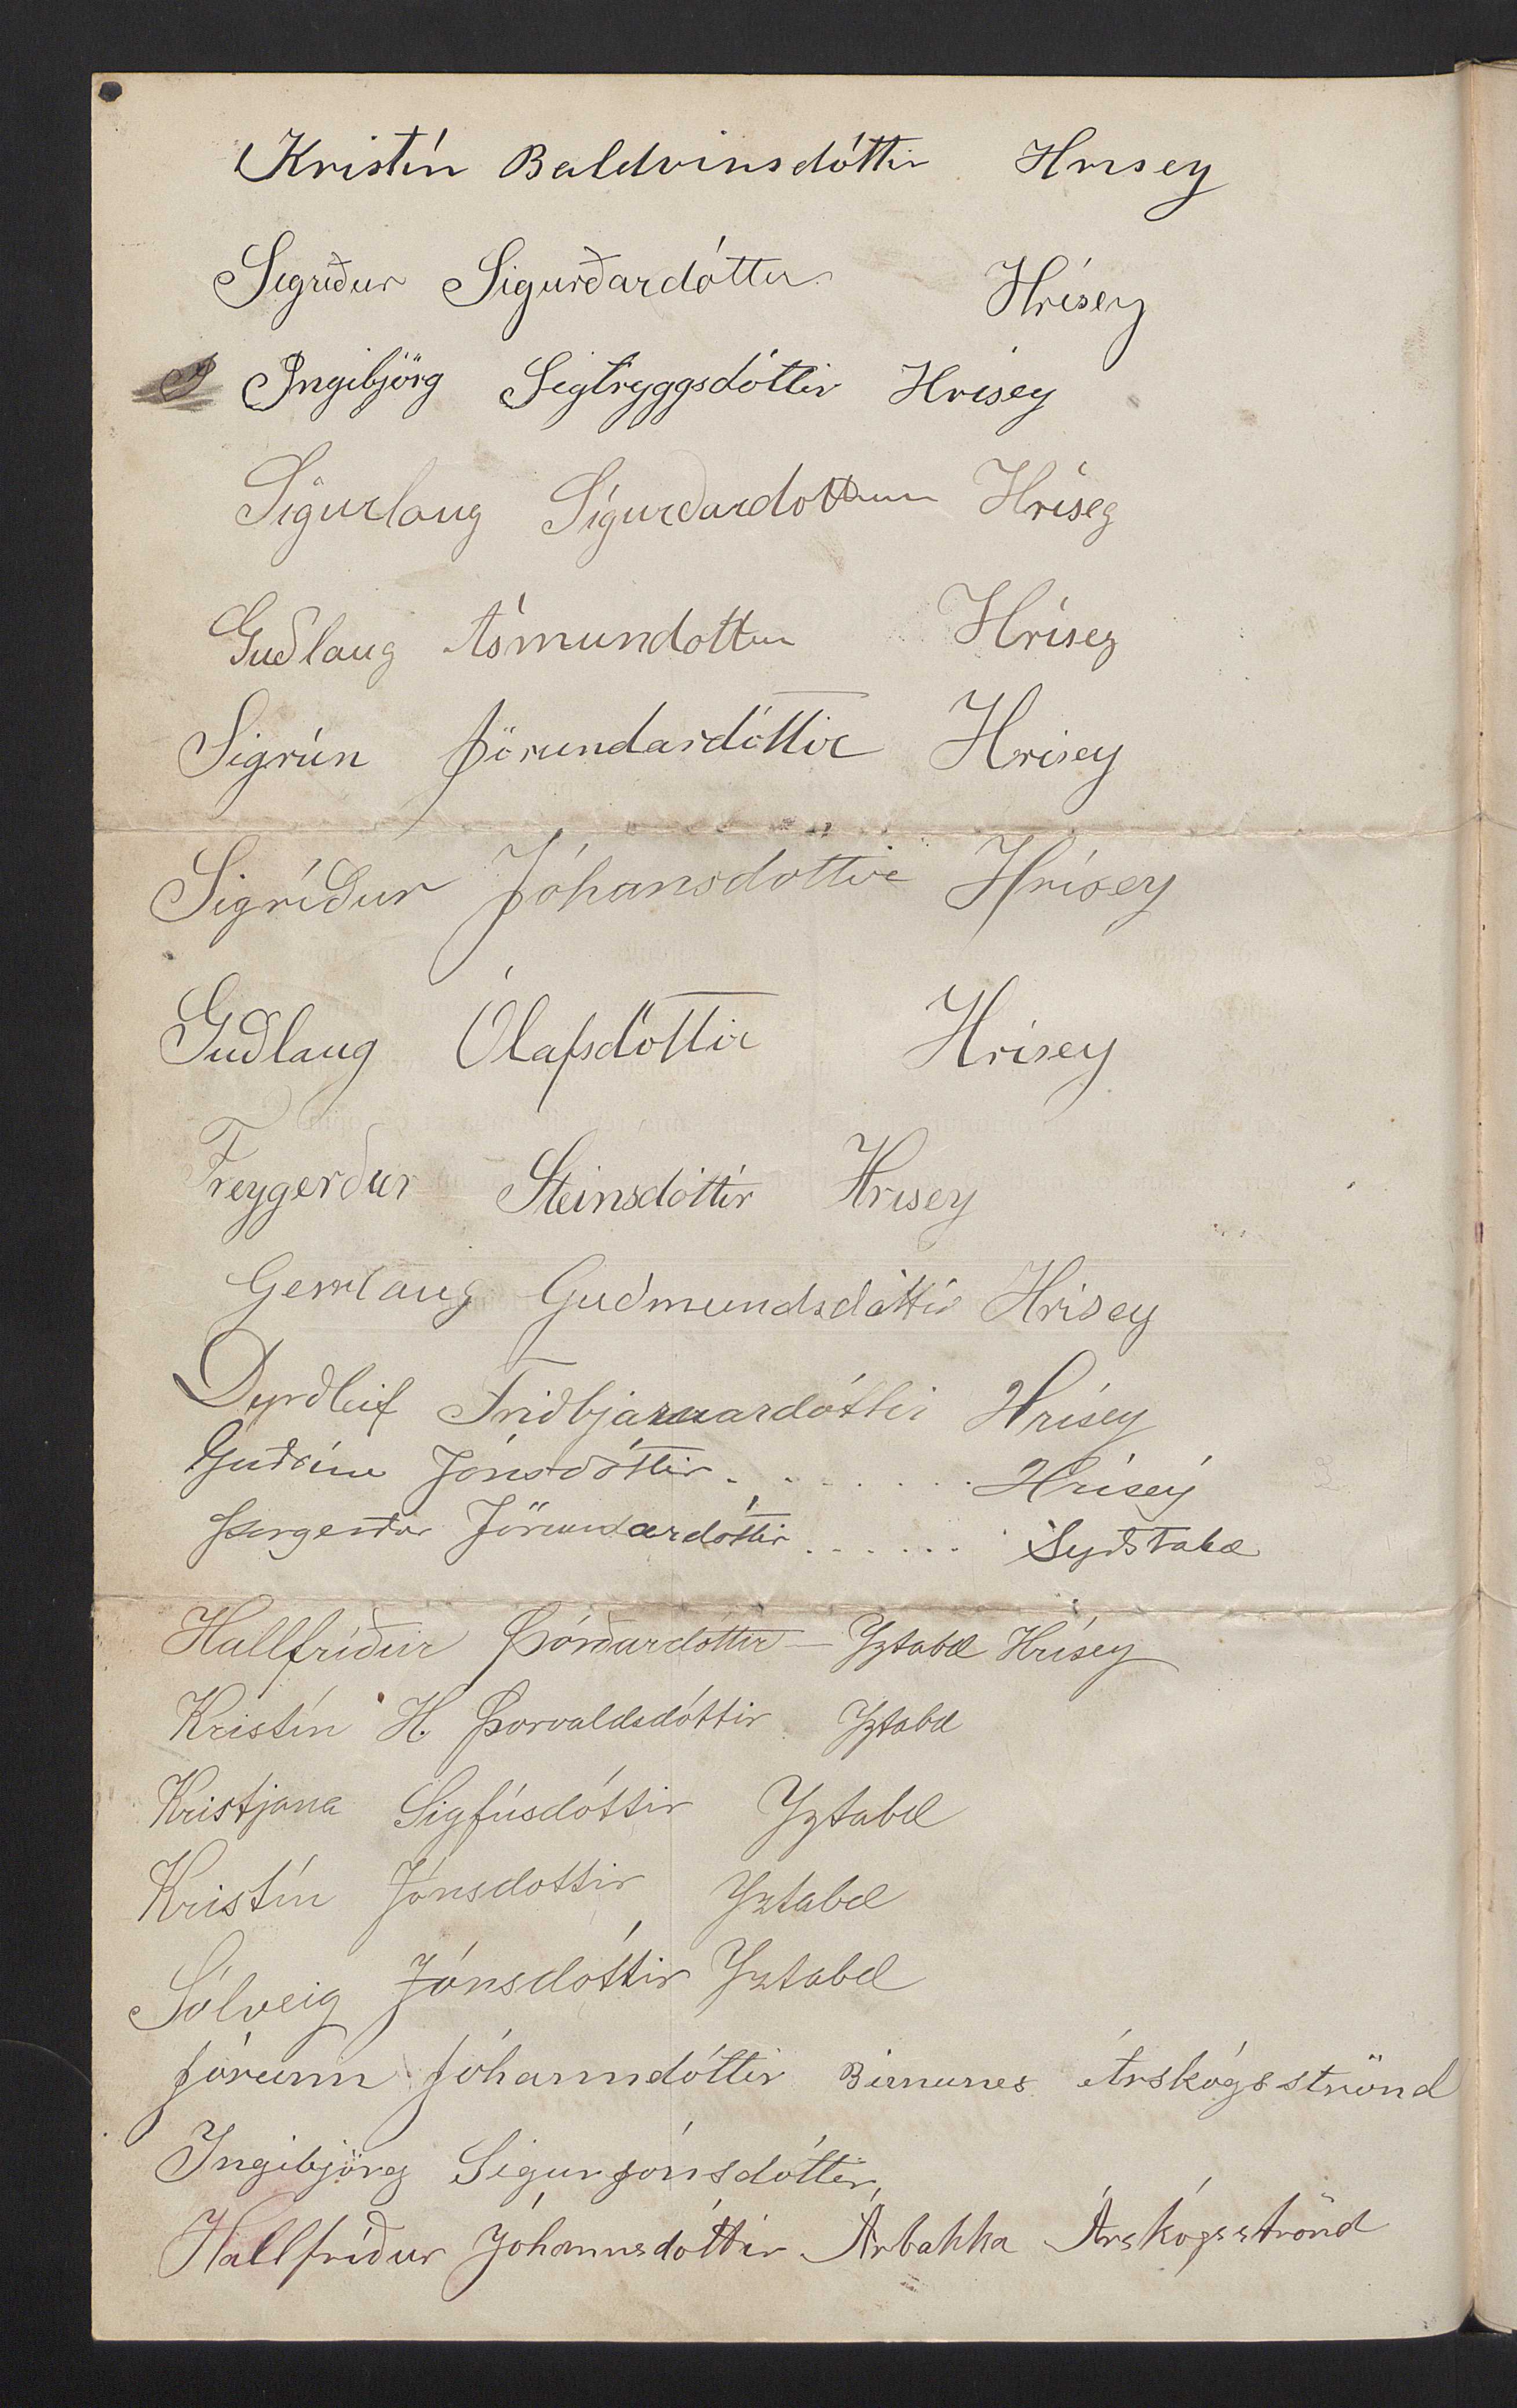 Kristín Baldvinsdóttir Hrisey
Sigriður Sigurðardóttir Hrísey
Ingibjörg Sigtryggsdóttir Hrísey
Sigurlaug Sigurðardottur Hrísey
Guðlaug Ásmundottur Hrísey
Sigrún Jörundardóttir Hrísey
Sigríður Jóhansdottir Hrísey
Guðlaug Ólafsdóttir Hrísey
Freygerður Steinsdóttir Hrisey
Geirlaug Guðmundsdóttir Hrisey
Dyrðleif Friðbjarnardóttir Hrísey
Guðrún Jónsdóttir . . . . . . . Hrísey
Þorgerður Jörundardóttir . . . . . . Syðstabæ
Hallfríður Þórðardóttir – Yztabæ Hrísey
Kristín H. Þorvaldsdóttir Yztabæ
Kristjana Sigfúsdóttir Yztabæ
Kristín Jónsdottir Yztabæ
Sólveig Jónsdóttir Yztabæ
Jórunn Jóhanndóttir Birnunes Árskógsströnd
Ingibjörg Sigurjónsdóttir,
Hallfríður Jóhannsdóttir Árbakka Árskógsströnd